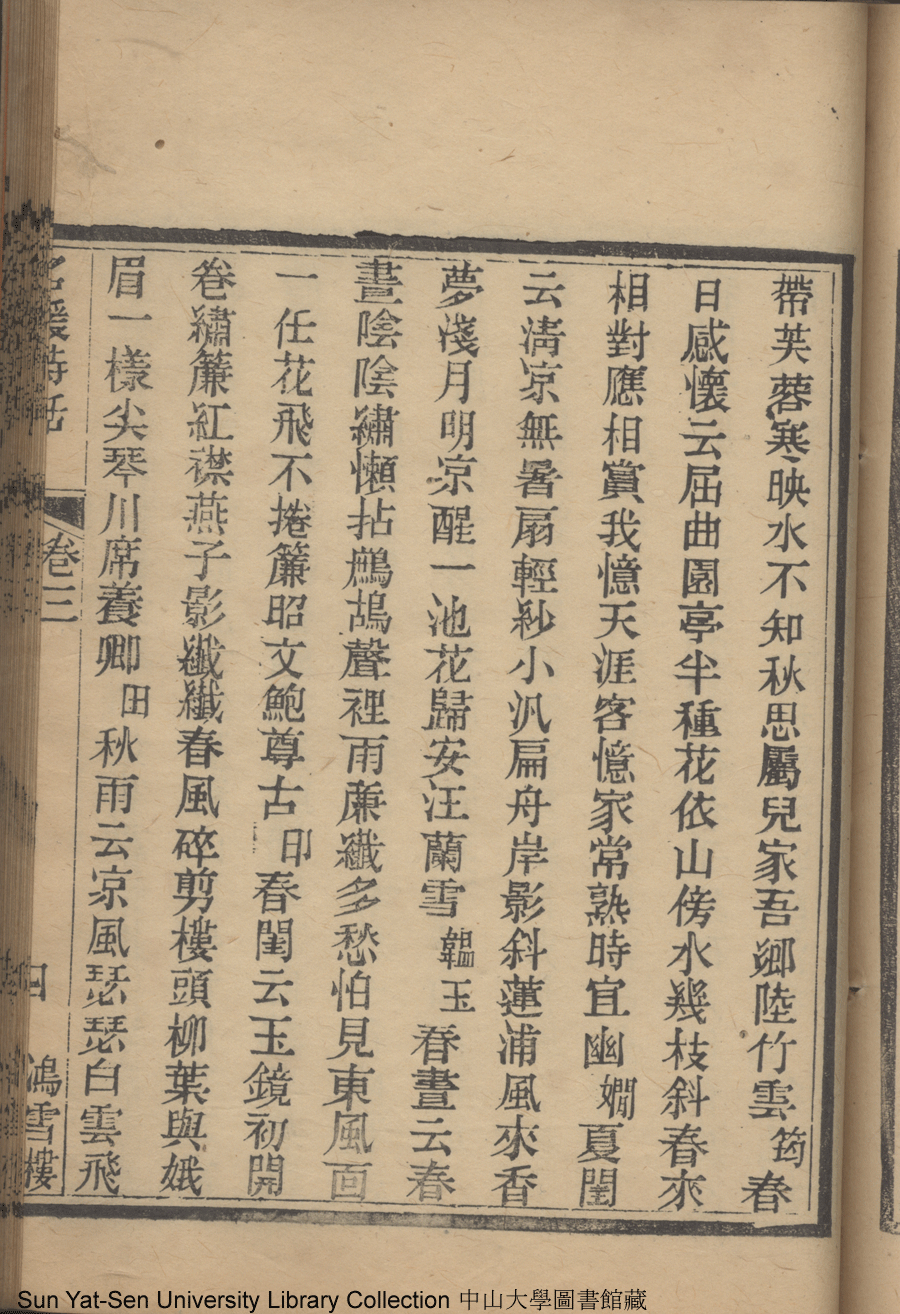 帶芙蓉寒映水不知秋思屬兒家吾鄉陸竹雲筠春
日感懷云屈曲園亭半種花依山傍水幾枝斜春來
相對應相賞我憶天涯客憶家常熟時宜幽嫺夏閨
云淸凉無暑扇輕紗小汎扁舟岸影斜蓮浦風來香
夢淺月明凉醒一池花歸安汪蘭雪韞玉春晝云春
晝陰陰繡懶拈鷓鴣聲裡雨廉纖多愁怕見東風面
一任花飛不捲簾昭文鮑尊古印春閨云玉鏡初開
卷繡簾紅襟燕子影纖纖春風碎剪樓頭柳葉與娥
眉一樣尖琴川席養卿田秋雨云凉風瑟瑟白雲飛
名媛詩話 卷三 四 鴻雪樓
Sun Yat-Sen University Library Collection 中山大學圖書館藏